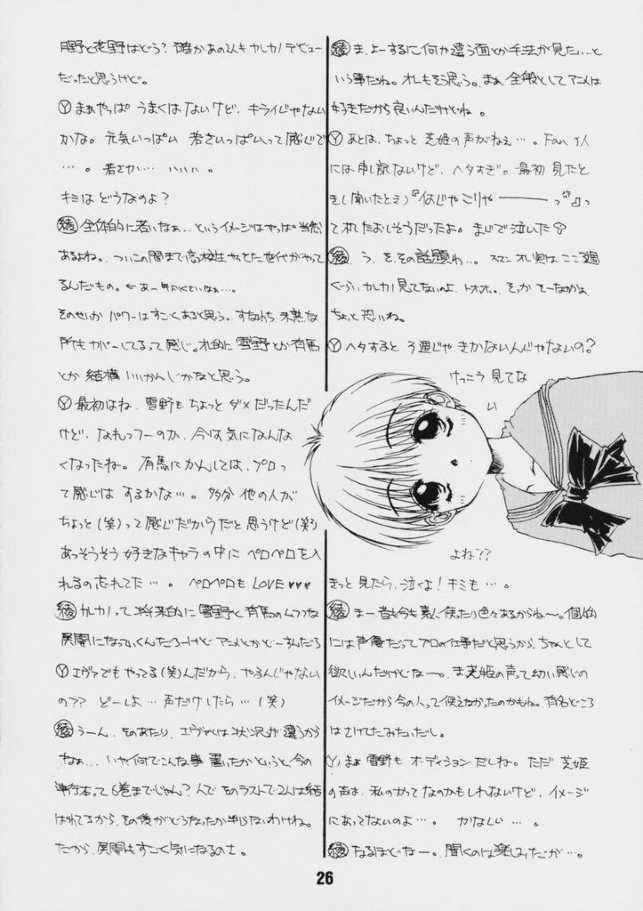 月野と花野はどう？確かあの2人キカレカノデビュー
だったと思うけど。
Ⓨまぁやっぱ うまくはないけど、キライじゃない
かな。元気いっぱい 若さいっぱいって感じで
…。若さか… いいん。
キミは どうなのよ？
綾 全体的に若いなぁ…というイメージはやっぱ当然
あるよね。ついこの間まで高校生やってた世代がやって
るんだもの。
そのせいか パワーはすごくあると思う。すなわち、未熟な
所もカバーしてるって感じ。私的に雪野とか有馬
とか 結構いいかんじかなと思う。
Ⓨ最初はね、雪野もちょっと ダメだったんだ
けど、なれっつーのか、今は気になんな
くなったね。有馬にかんしては、プロっ
て感じは するかな…。多分 他の人が
ちょっと(笑)って感じだからだと思うけど(笑)
あっそうそう 好きなキャラの中に ペロペロを入
れるの忘れてた…。ペロペロも LOVE♥♥♥
綾 カレカノって将来的に雪野と有馬のムフフな
展開になっていくんだろーけど アニメとかどーすんだろ
Ⓨエヴァでもやってる(笑)んだから、やるんじゃない
の？？ どーしよ…声だけしたら…(笑)
綾 うーん、そのあたり、エヴァとは状況が違うから
なぁ… いや何でこんな事 書いたかというと、今の
単行本って6巻まででじゃん？んで そのラストで2人は結
ばれてるから、その後がどうなったか判らないわけね。
だから、展開もすごく気になるのさ。
綾 ま、よーするに何か違う面とか手法が見た…と
いう事だね。オレもそう思う。まぁ 全般としてアニメは
好きだから良いんだけどね。
Ⓨあとは、ちょっと 芝姫の声がねぇ…。Fan の人
には申し訳ないけど、ヘタすぎ。最初 見たと
き(聞いたとき)『なんじゃこりゃーーーっ』っ
て たおれそうだったよ。まじで泣いた
綾 う、を、その話題ね…。スマン オレ実は ここ3週
ぐらい カレカノ 見てないのよ、トホホ。
ちょっと 恐いね。
Ⓨヘタすると 3週じゃ きかないんじゃないの？
けっこう 見てな
い
よね？？
きっと見たら、泣くよ！キミも…。
綾 まー 昔も今も素人使ったり色々あるからね〜。個人的
には声優だってプロの仕事だと思うから、ちゃんとして
欲しいんだけどなー。ま 芝姫の声って幼い感じの
イメージだから今の人って使えなかったのかもね。有名どころ
はさけてたみたいだし。
Ⓨまぁ 雪野も オーディションだしね。ただ 芝姫
の声は、私のかってなのかもしれないけど、イメージ
にあってないのよ…。かなしい…。
綾 なるほどなー。聞くのは楽しみだが…。
26